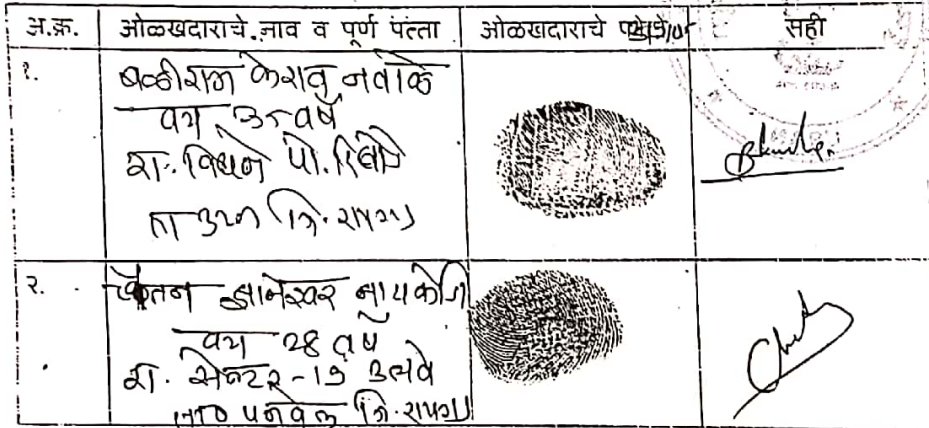 अ.क्र. ओळखदाराचे नाव व पूर्ण पत्ता ओळखदाराचे सही
१.
बळीराम केशव नवाळे
वय 35 वर्षे
रा. विंधणे पो.
ता उरण जि. रायगड
२. चेतन ज्ञानेश्वर नायकोजी
वय 28 वर्षे
रा. सेक्टर-19 उलवे
ता पनवेल जि. रायगड